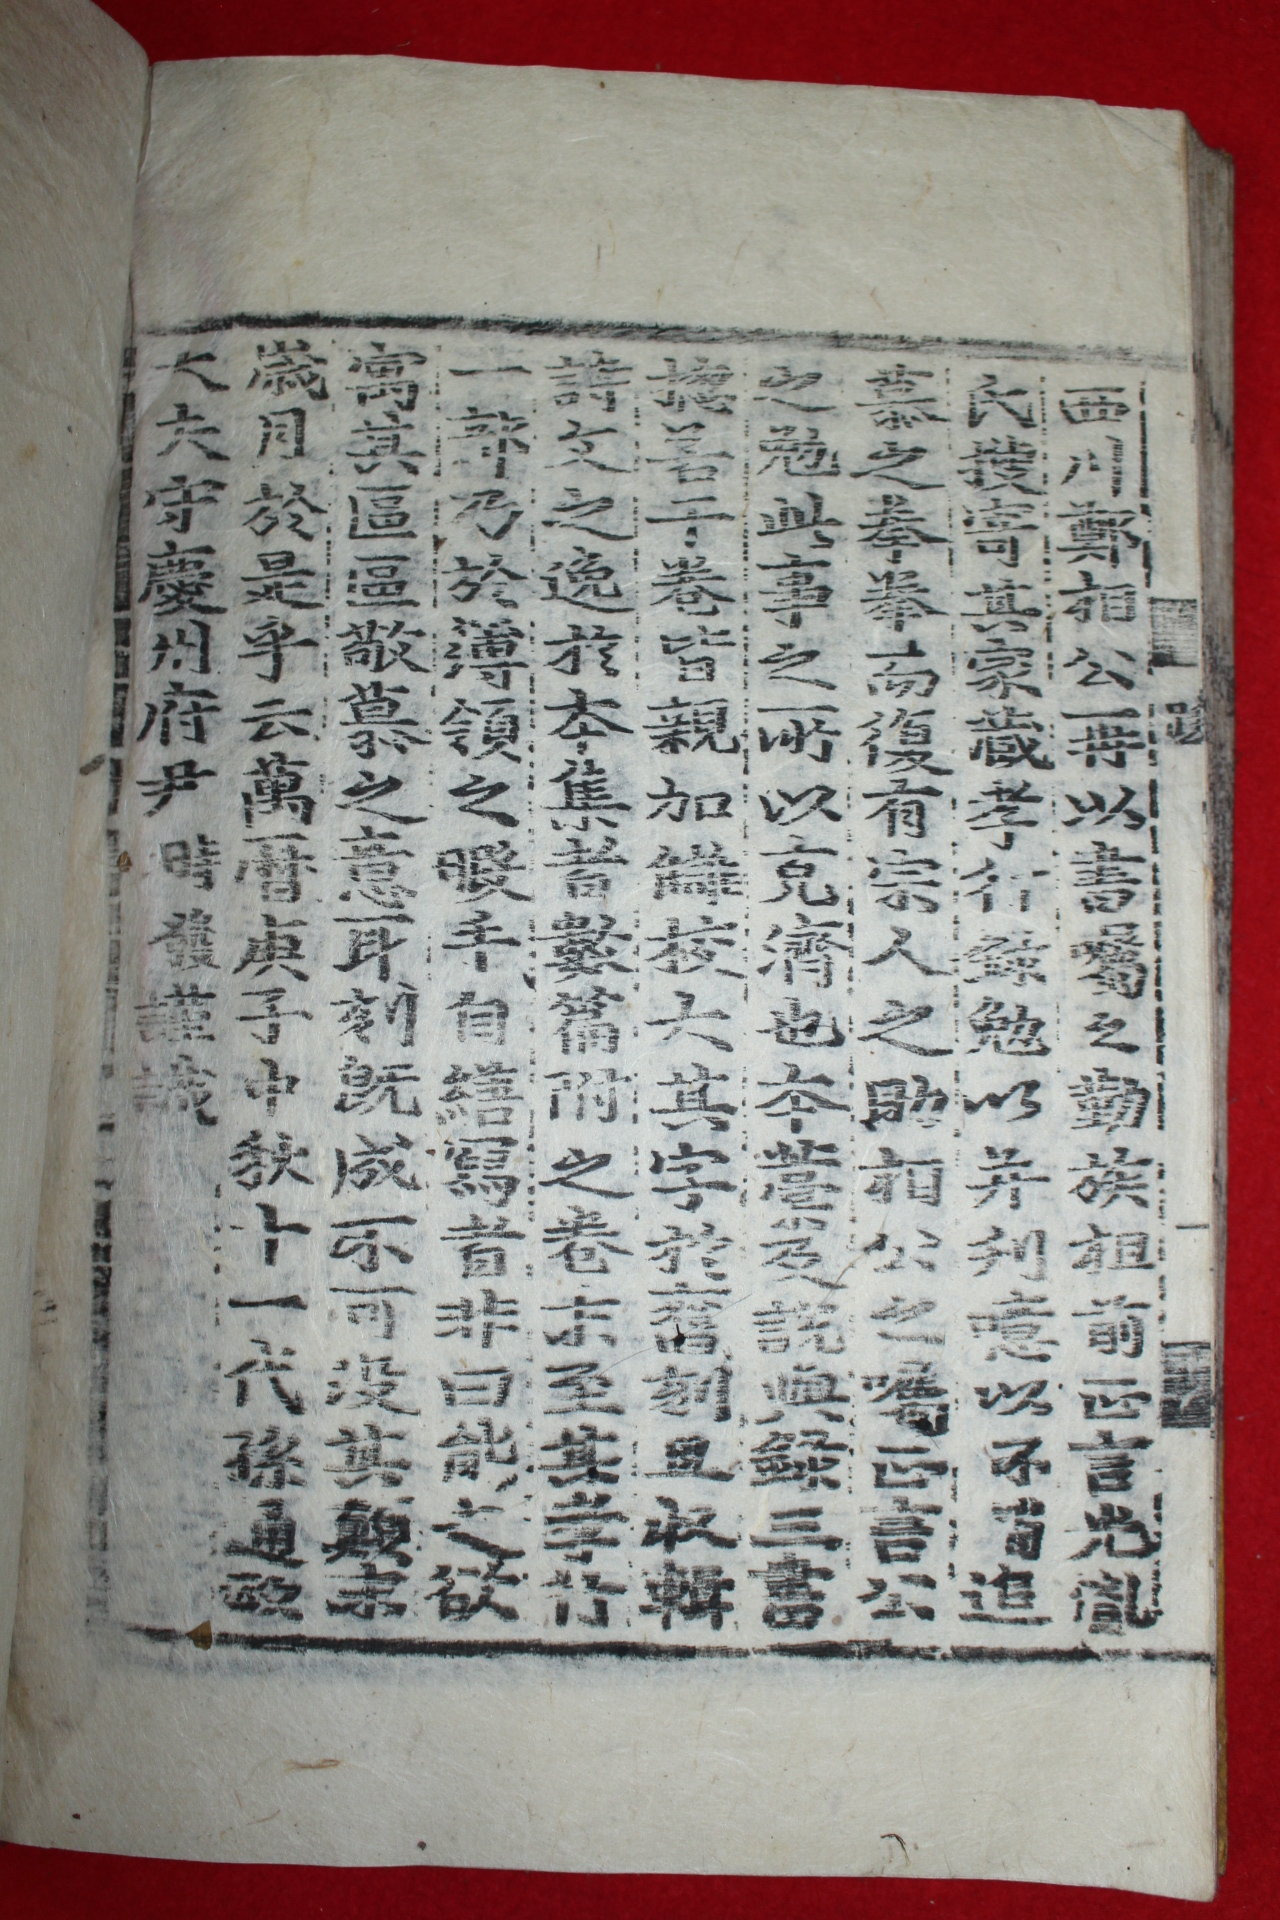 西川鄭相公再以書囑之勤族祖前正言光胤
氏護寄其家藏孝行錄勉以幷刊噫以不肖追
慕之拳拳而復有宗人之助相公之囑正言公
之勉此事之所以克濟也本藁及說與錄三書
摠若干卷皆親加讎校大其字於舊刻且收輯
詩文之逸於本集者數篇附之卷末至其孝行
一部乃於簿領之暇手自繕寫者非曰能之欲
寓其區區敬慕之意耳刻旣成不可沒其顚末
歲月於是乎云萬曆庚子中秋十一代孫通政
大夫守慶州府尹 時發謹識